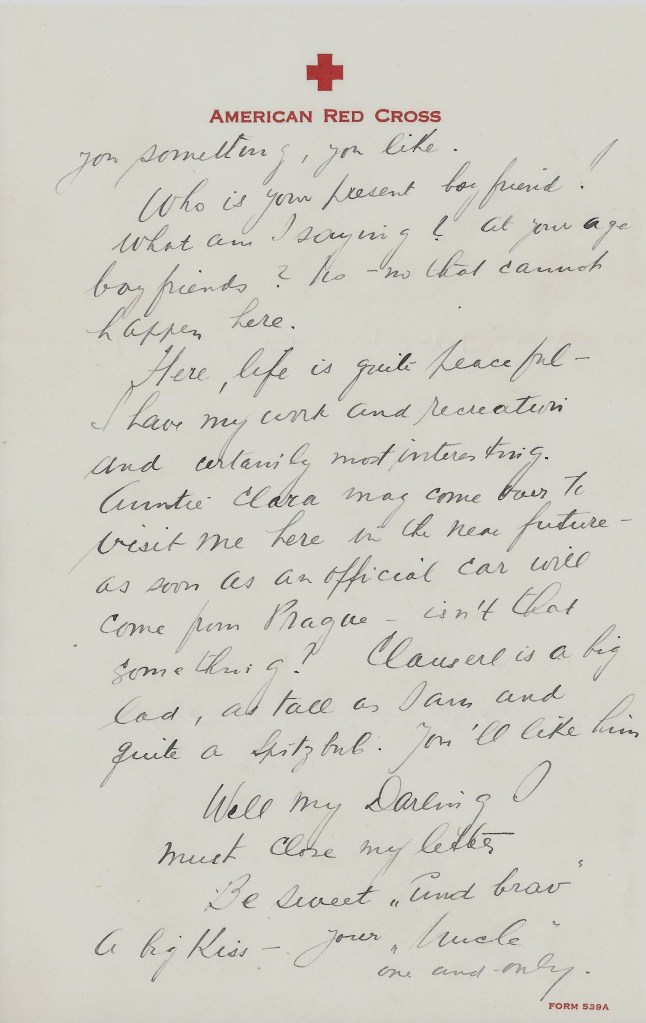 AMERICAN RED CROSS
you something, you like.
Who is your present boyfriend!
What am I saying? At your age
boyfriends? No - no that cannot
happen here.
Here, life is quite peaceful -
I have my work and recreation
and certainly most interesting.
Auntie Clara may come over to
visit me here in the near future -
as soon as an official car will
come from Prague - isn't that
something? Clauserl is a big
lad, as tall as I am and
quite a Spitzbub. You'll like him
Well my Darling I
must close my letter
Be sweet „und brav"
A big Kiss - your „Uncle"
one and only.
FORM 539A